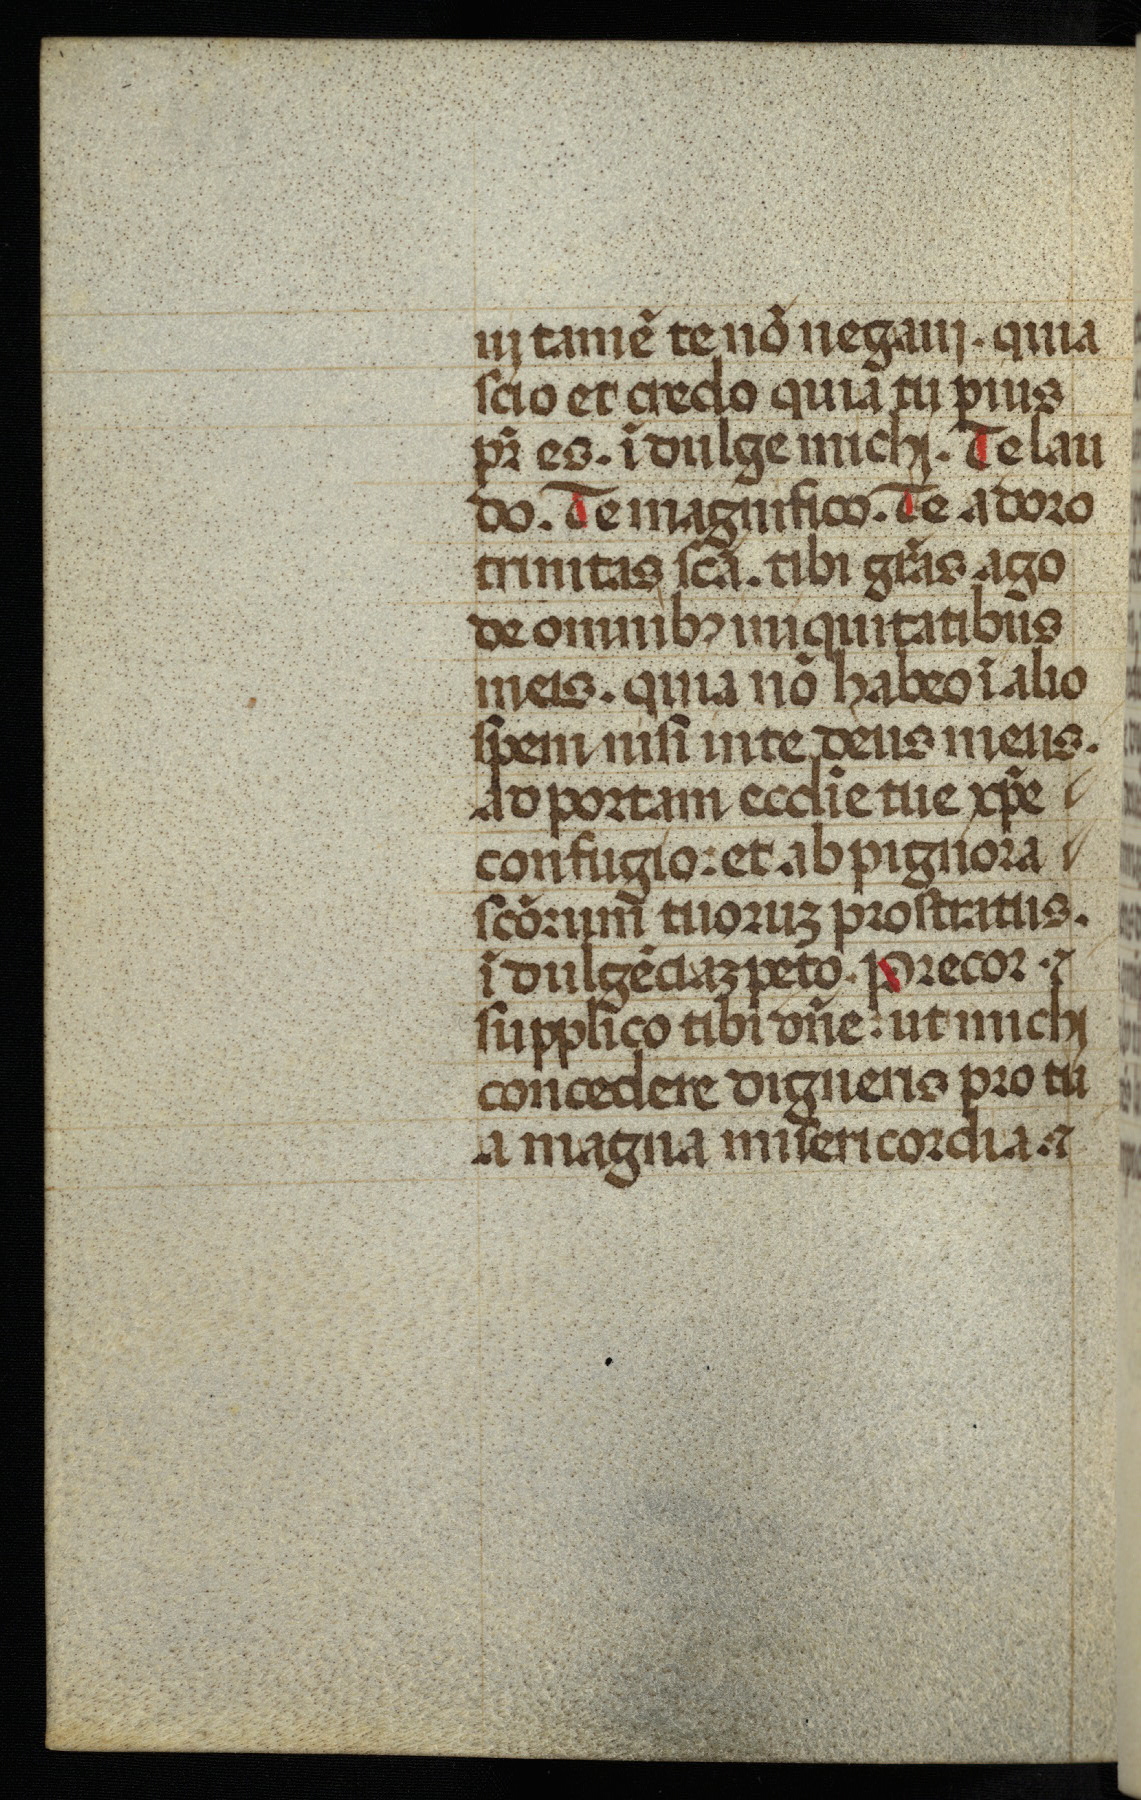 uj tamē te nō negauj. quia
scio et credo quia tu pius
pr̄ es. īdulge michj. Te lau
do. Te magnifico. Te adoro
trinitas scā. tibi grās ago
de omnibꝫ iniquitatibus
meis. quia nō habeo ī alio
spem nisi in te deus meus.
Ad portam eccli̅e tue xp̄e
confugio: et ab pignora
scōrum tuoruꝫ prostratus.
īdulgēciaꝫ peto. Precor ⁊
supplico tibi dn̄e: ut michj
concedere digneris pro tu
a magna misericordia ⁊